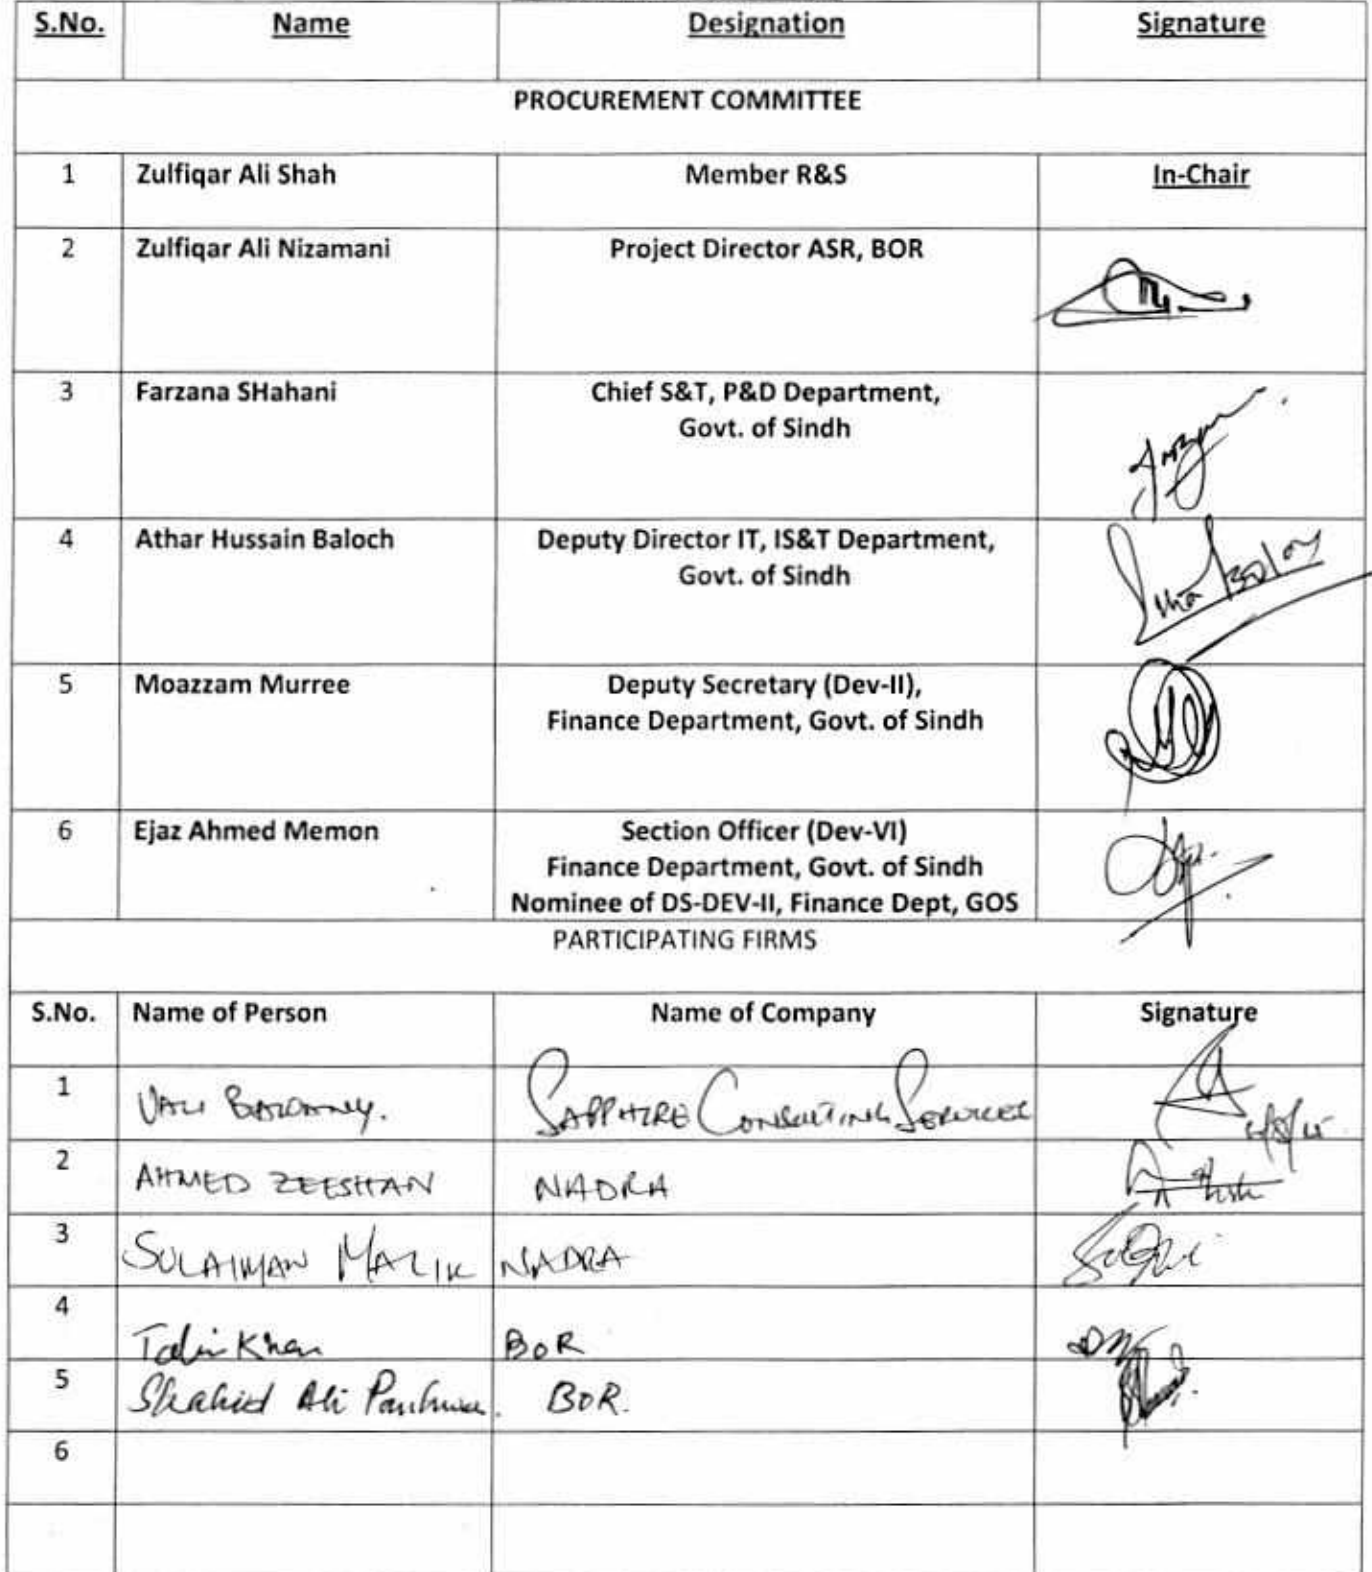 S.No. Name Designation Signature
PROCUREMENT COMMITTEE
1 Zulfiqar Ali Shah Member R&S In-Chair
2 Zulfiqar Ali Nizamani Project Director ASR, BOR
3 Farzana SHahani Chief S&T, P&D Department,
Govt. of Sindh
4 Athar Hussain Baloch Deputy Director IT, IS&T Department,
Govt. of Sindh
5 Moazzam Murree Deputy Secretary (Dev-II),
Finance Department, Govt. of Sindh
6 Ejaz Ahmed Memon Section Officer (Dev-VI)
Finance Department, Govt. of Sindh
Nominee of DS-DEV-II, Finance Dept, GOS
PARTICIPATING FIRMS
S.No. Name of Person Name of Company Signature
1 SAPPHIRE CONSULTING SERVICES
2 AHMED ZEESHAN NADRA
3 SULAIMAN MALIK NADRA
4 Khan BOR
5 Shahid Ali BOR.
6